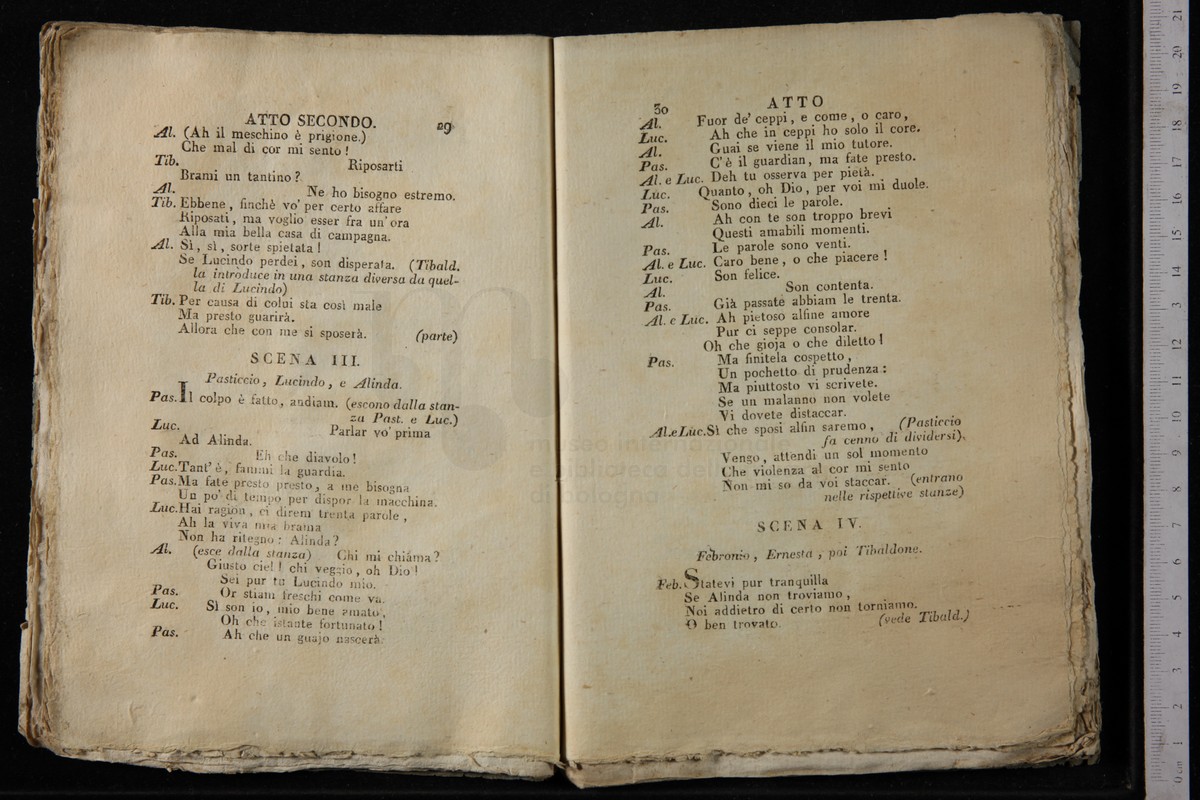 ATTO SECONDO. 29
Al. (Ah il meschino è prigione.)
Che mal di cor mi sento!
Tib. Riposarti
Brami un tantino?
Al. Ne ho bisogno estremo.
Tib. Ebbene, finchè vo' per certo affare
Riposati, ma voglio esser fra un'ora
Alla mia bella casa di campagna.
Al. Sì, sì, sorte spietata!
Se Lucindo perdei, son disperata. (Tibald.
la introduce in una stanza diversa da quel-
la di Lucindo)
Tib. Per causa di colui sta così male
Ma presto guarirà.
Allora che con me si sposerà. (parte)
SCENA III.
Pasticcio, Lucindo, e Alinda.
Pas. Il colpo è fatto, andiam. (escono dalla stan-
za Past. e Luc.)
Luc. Parlar vo' prima
Ad Alinda.
Pas. Eh che diavolo!
Luc. Tant'è, fammi la guardia.
Pas. Ma fate presto presto, a me bisogna
Un po' di tempo per dispor la macchina.
Luc. Hai ragion, ci direm trenta parole,
Ah la viva mia brama
Non ha ritegno: Alinda?
Al. (esce dalla stanza) Chi mi chiama?
Giusto ciel! chi veggio, oh Dio!
Sei pur tu Lucindo mio.
Pas. Or stiam freschi come va.
Luc. Sì son io, mio bene amato,
Oh che istante fortunato!
Pas. Ah che un guajo nascerà.
30 ATTO
Al. Fuor de' ceppi, e come, o caro,
Luc. Ah che in ceppi ho solo il core.
Al. Guai se viene il mio tutore.
Pas. C'è il guardian, ma fate presto.
Al. e Luc. Deh tu osserva per pietà.
Luc. Quanto, oh Dio, per voi mi duole.
Pas. Sono dieci le parole.
Al. Ah con te son troppo brevi
Questi amabili momenti.
Pas. Le parole sono venti.
Al. e Luc. Caro bene, o che piacere!
Luc. Son felice.
Al. Son contenta.
Pas. Già passate abbiam le trenta.
Al. e Luc. Ah pietoso alfine amore
Pur ci seppe consolar.
Oh che gioja o che diletto!
Pas. Ma finitela cospetto,
Un pochetto di prudenza:
Ma piuttosto vi scrivete.
Se un malanno non volete
Vi dovete distaccar.
Al. e Luc. Sì che sposi alfin saremo, (Pasticcio
fa cenno di dividersi).
Vengo, attendi un sol momento
Che violenza al cor mi sento
Non mi so da voi staccar. (entrano
nelle rispettive stanze)
SCENA IV.
Febronio, Ernesta, poi Tibaldone.
Feb. Statevi pur tranquilla
Se Alinda non troviamo,
Noi addietro di certo non torniamo.
O ben trovato. (vede Tibald.)